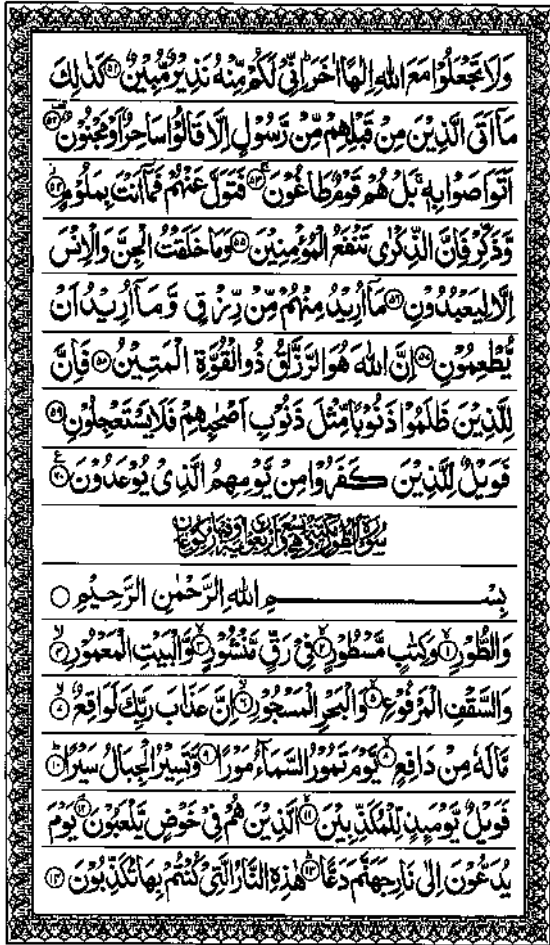 وَلَا تَجْعَلُوْا مَعَ اللّٰهِ اِلٰهًا اٰخَرَ ؕ اِنِّیْ لَكُمْ مِّنْهُ نَذِیْرٌ مُّبِیْنٌ ۚ﴿۵۱﴾ كَذٰلِكَ
مَاۤ اَتَی الَّذِیْنَ مِنْ قَبْلِهِمْ مِّنْ رَّسُوْلٍ اِلَّا قَالُوْا سَاحِرٌ اَوْ مَجْنُوْنٌ ﴿۵۲﴾
اَتَوَاصَوْا بِهٖ ۚ بَلْ هُمْ قَوْمٌ طَاغُوْنَ ﴿۵۳﴾ فَتَوَلَّ عَنْهُمْ فَمَاۤ اَنْتَ بِمَلُوْمٍ ﴿۵۴﴾
وَّذَكِّرْ فَاِنَّ الذِّكْرٰی تَنْفَعُ الْمُؤْمِنِیْنَ ﴿۵۵﴾ وَمَا خَلَقْتُ الْجِنَّ وَالْاِنْسَ
اِلَّا لِیَعْبُدُوْنِ ﴿۵۶﴾ مَاۤ اُرِیْدُ مِنْهُمْ مِّنْ رِّزْقٍ وَّمَاۤ اُرِیْدُ اَنْ
یُّطْعِمُوْنِ ﴿۵۷﴾ اِنَّ اللّٰهَ هُوَ الرَّزَّاقُ ذُو الْقُوَّةِ الْمَتِیْنُ ﴿۵۸﴾ فَاِنَّ
لِلَّذِیْنَ ظَلَمُوْا ذَنُوْبًا مِّثْلَ ذَنُوْبِ اَصْحٰبِهِمْ فَلَا یَسْتَعْجِلُوْنِ ﴿۵۹﴾
فَوَیْلٌ لِّلَّذِیْنَ كَفَرُوْا مِنْ یَّوْمِهِمُ الَّذِیْ یُوْعَدُوْنَ ﴿۶۰﴾
سُوْرَةُ الطُّوْرِ مَكِّیَّةٌ وَّهِیَ تِسْعٌ وَّاَرْبَعُوْنَ اٰیَةً وَّفِیْهَا رُكُوْعَانِ
بِسْمِ اللّٰهِ الرَّحْمٰنِ الرَّحِیْمِ
وَالطُّوْرِ ۙ﴿۱﴾ وَكِتٰبٍ مَّسْطُوْرٍ ۙ﴿۲﴾ فِیْ رَقٍّ مَّنْشُوْرٍ ۙ﴿۳﴾ وَّالْبَیْتِ الْمَعْمُوْرِ ۙ﴿۴﴾
وَالسَّقْفِ الْمَرْفُوْعِ ۙ﴿۵﴾ وَالْبَحْرِ الْمَسْجُوْرِ ۙ﴿۶﴾ اِنَّ عَذَابَ رَبِّكَ لَوَاقِعٌ ۙ﴿۷﴾
مَّا لَهٗ مِنْ دَافِعٍ ۙ﴿۸﴾ یَّوْمَ تَمُوْرُ السَّمَآءُ مَوْرًا ۙ﴿۹﴾ وَّتَسِیْرُ الْجِبَالُ سَیْرًا ؕ﴿۱۰﴾
فَوَیْلٌ یَّوْمَىِٕذٍ لِّلْمُكَذِّبِیْنَ ۙ﴿۱۱﴾ الَّذِیْنَ هُمْ فِیْ خَوْضٍ یَّلْعَبُوْنَ ۘ﴿۱۲﴾ یَوْمَ
یُدَعُّوْنَ اِلٰی نَارِ جَهَنَّمَ دَعًّا ؕ﴿۱۳﴾ هٰذِهِ النَّارُ الَّتِیْ كُنْتُمْ بِهَا تُكَذِّبُوْنَ ﴿۱۴﴾